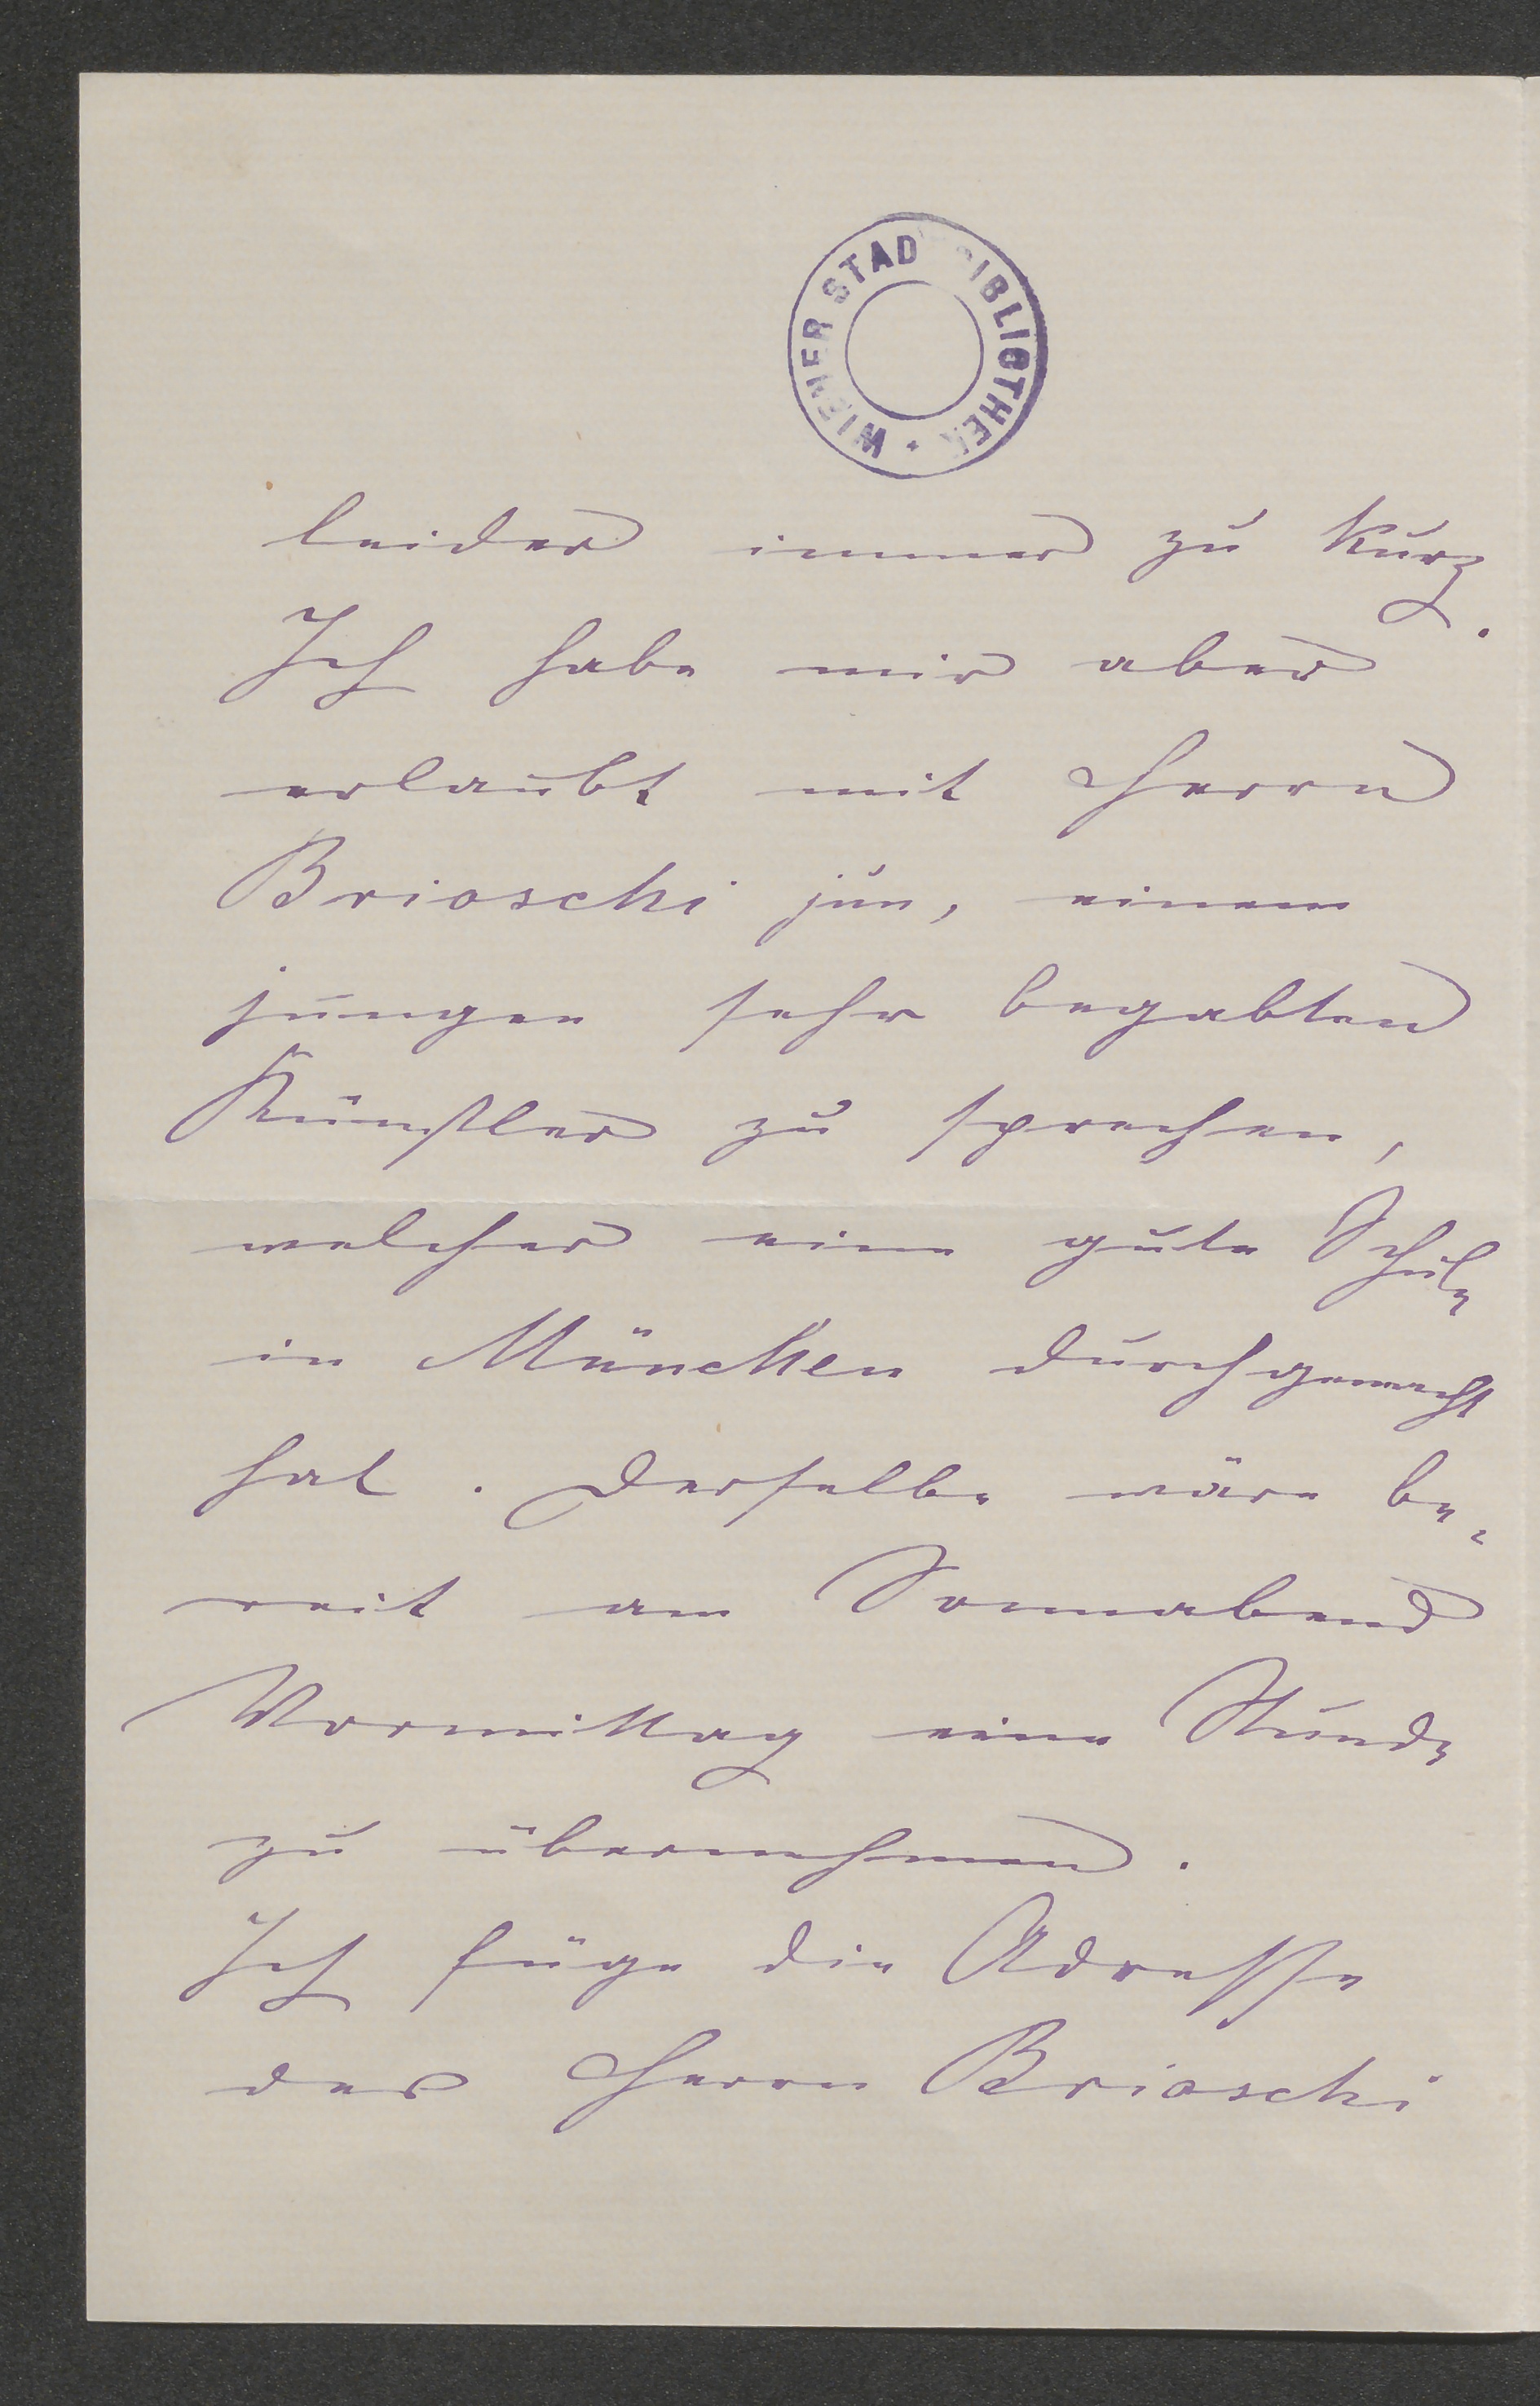 WIENER STADTBIBLIOTHEK *
leider immer zu kurz.
Ich habe mir aber
erlaubt mit Herrn
Brioschi jun, einem
jungen sehr begabten
Künstler zu sprechen,
welcher eine gute Schule
in München durchgemacht
hat. Derselbe wäre be-
reit am Sonnabend
Vormittag eine Stunde
zu übernehmen.
Ich füge die Adresse
des Herrn Brioschi